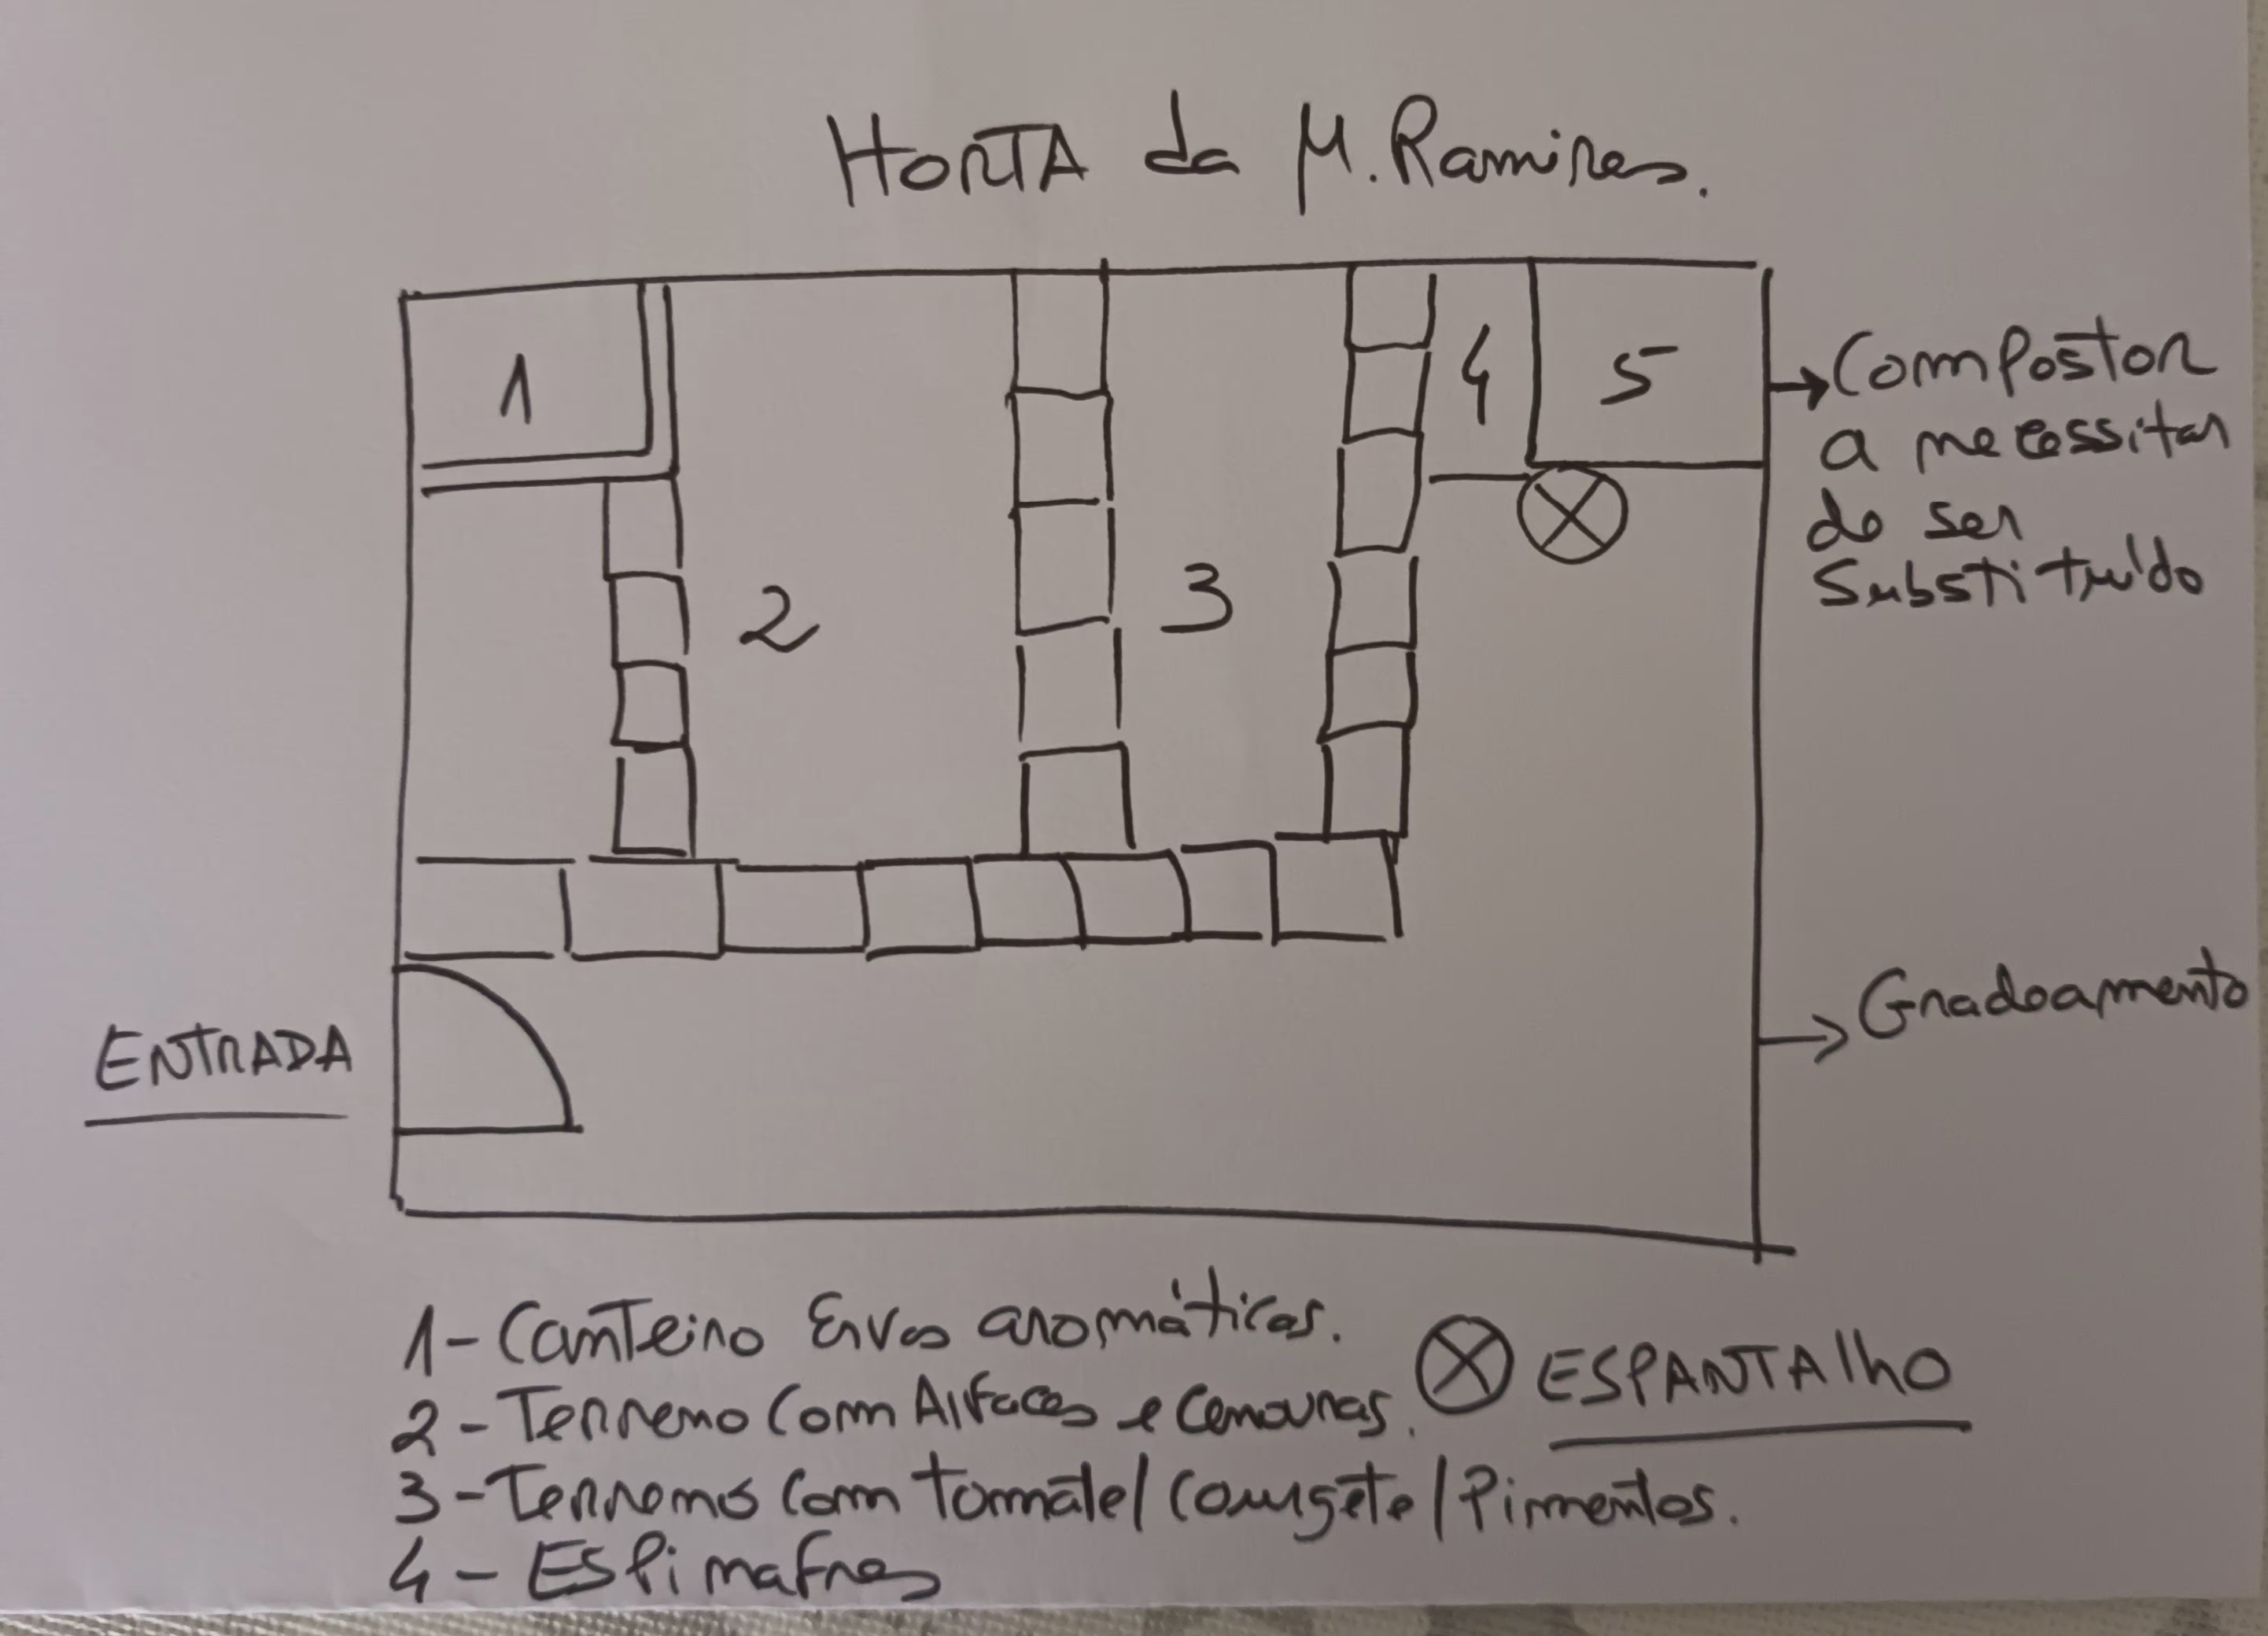 HORTA da M. Ramires.
1
2
3
4
5
Compostor
a necessitar
de ser
Substituído
ENTRADA
Gradeamento
1 - Canteiro Ervas aromáticas.
2 - Terreno com Alfaces e Cenouras.
ESPANTAlho
3 - Terrenos com tomate/Courgete/Pimentos.
4 - Espinafres